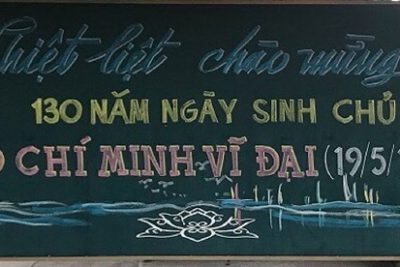 Nhiệt liệt chào mừng
130 NĂM NGÀY SINH CHỦ
CHÍ MINH VĨ ĐẠI (19/5/1